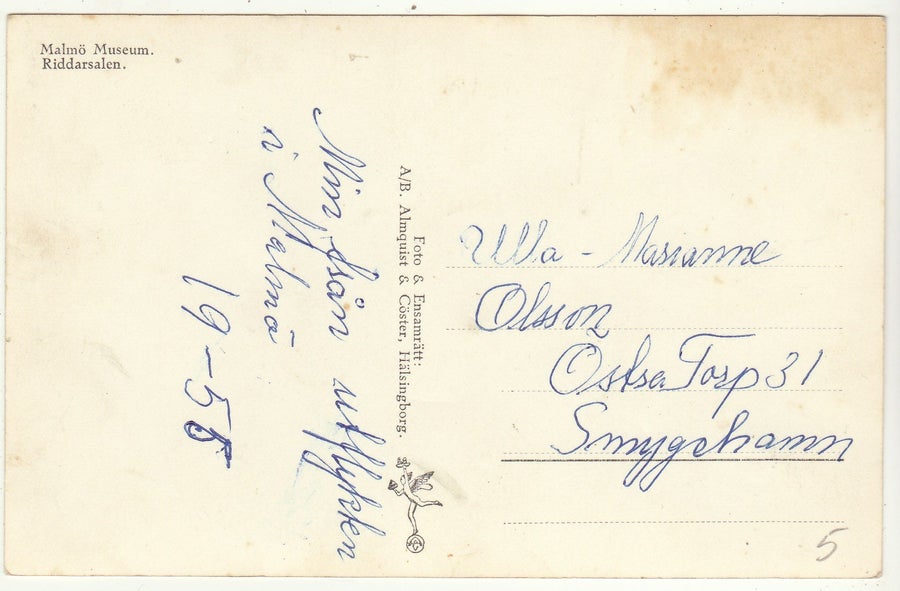 Malmö Museum.
Riddarsalen.
Minn från utflykten
i Malmö
19-55
Foto & Ensamrätt:
A/B. Almquist & Cöster, Hälsingborg.
Ulla - Marianne
Olsson
Östra Torp 31
Smygehamn
5